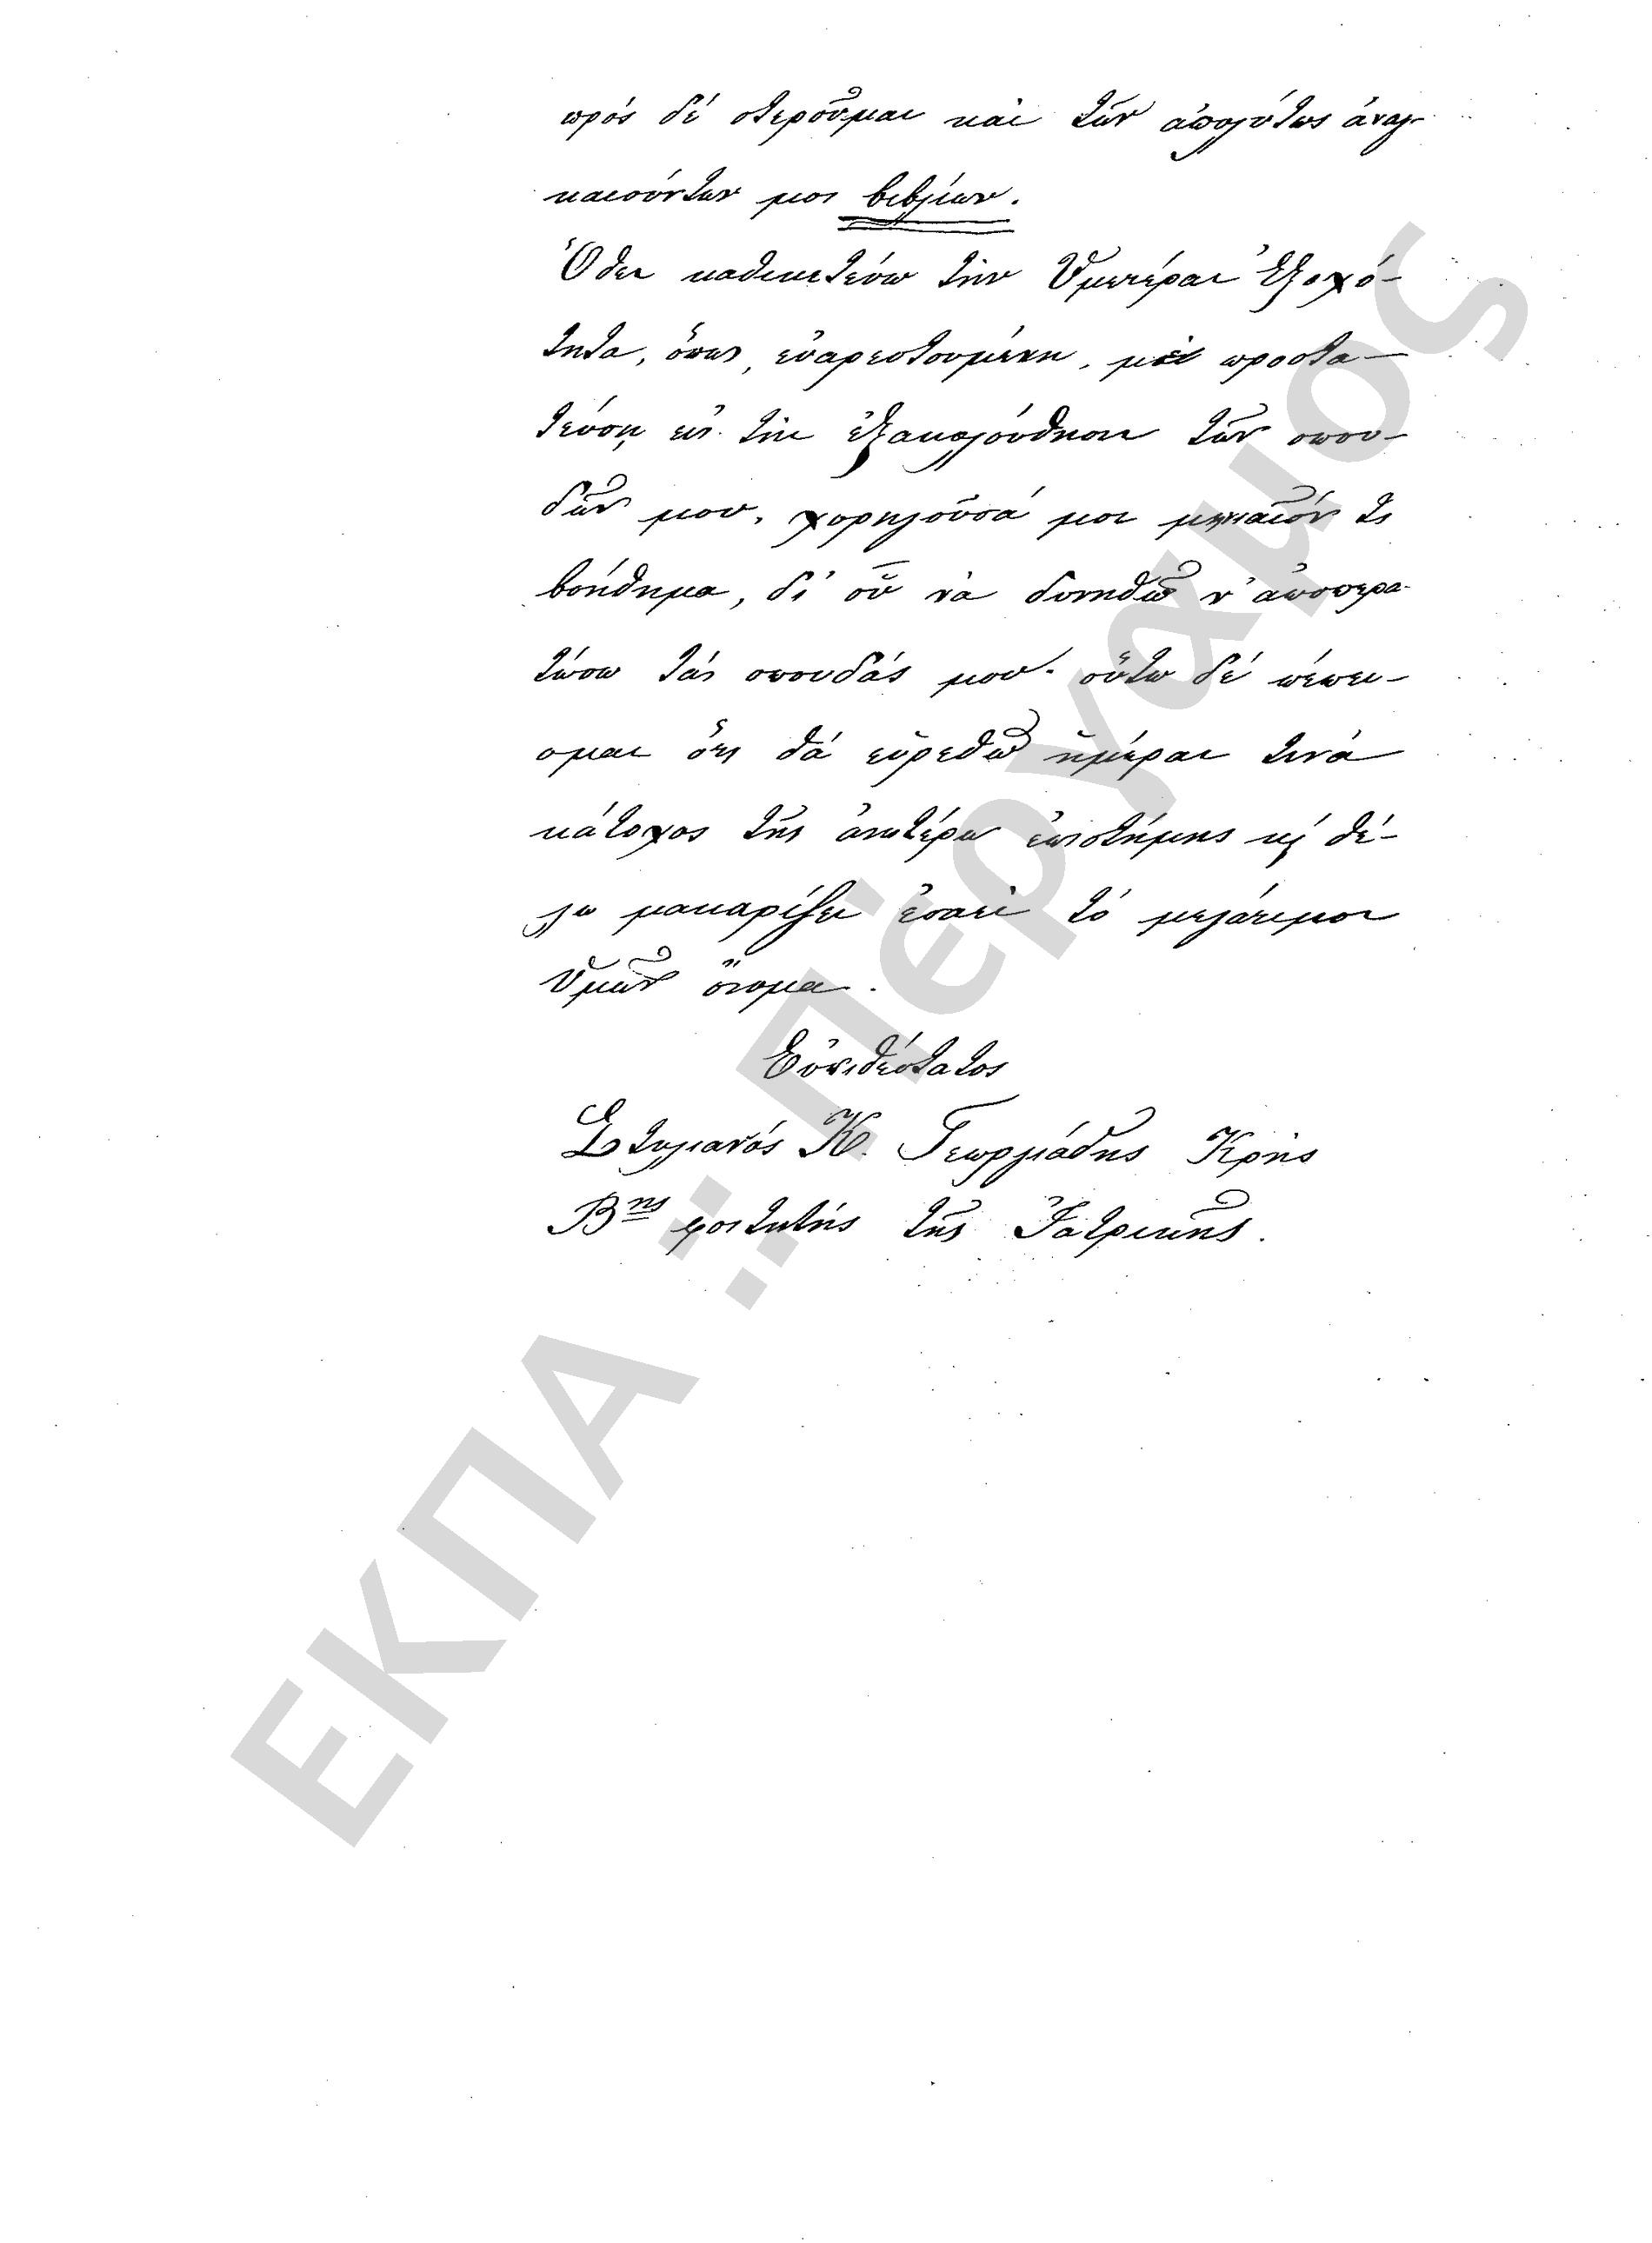 πρὸς δὲ στεροῦμαι καὶ τῶν ἀπολύτως ἀναγ-
καιούντων μοι βιβλίων.
Ὅθεν καθικετεύω τὴν Ὑμετέραν Ἐξοχό-
τητα, ὅπως, εὐαρεστουμένη, μὲ προστα-
τεύσῃ εἰς τὴν ἐξακολούθησιν τῶν σπου-
δῶν μου, χορηγοῦσά μοι μηνιαῖόν τι
βοήθημα, δι' οὗ νὰ δυνηθῶ ν' ἀποπερα-
τώσω τὰς σπουδάς μου· οὕτω δὲ πέπει-
σμαι ὅτι θὰ εὑρεθῶ ἡμέραν τινὰ
κάτοχος τῆς ἀνωτέρω ἐπιστήμης κ̀ θέ-
λω μακαρίζει ἐσαεὶ τὸ μεγάτιμον
Ὑμῶν ὄνομα.
Εὐπειθέστατος
Στυλιανός Κ. Γεωργιάδης Κρὴς
Βτης φοιτητὴς τῆς Ἰατρικῆς.
ΕΚΠΑ :: Πέργαμος